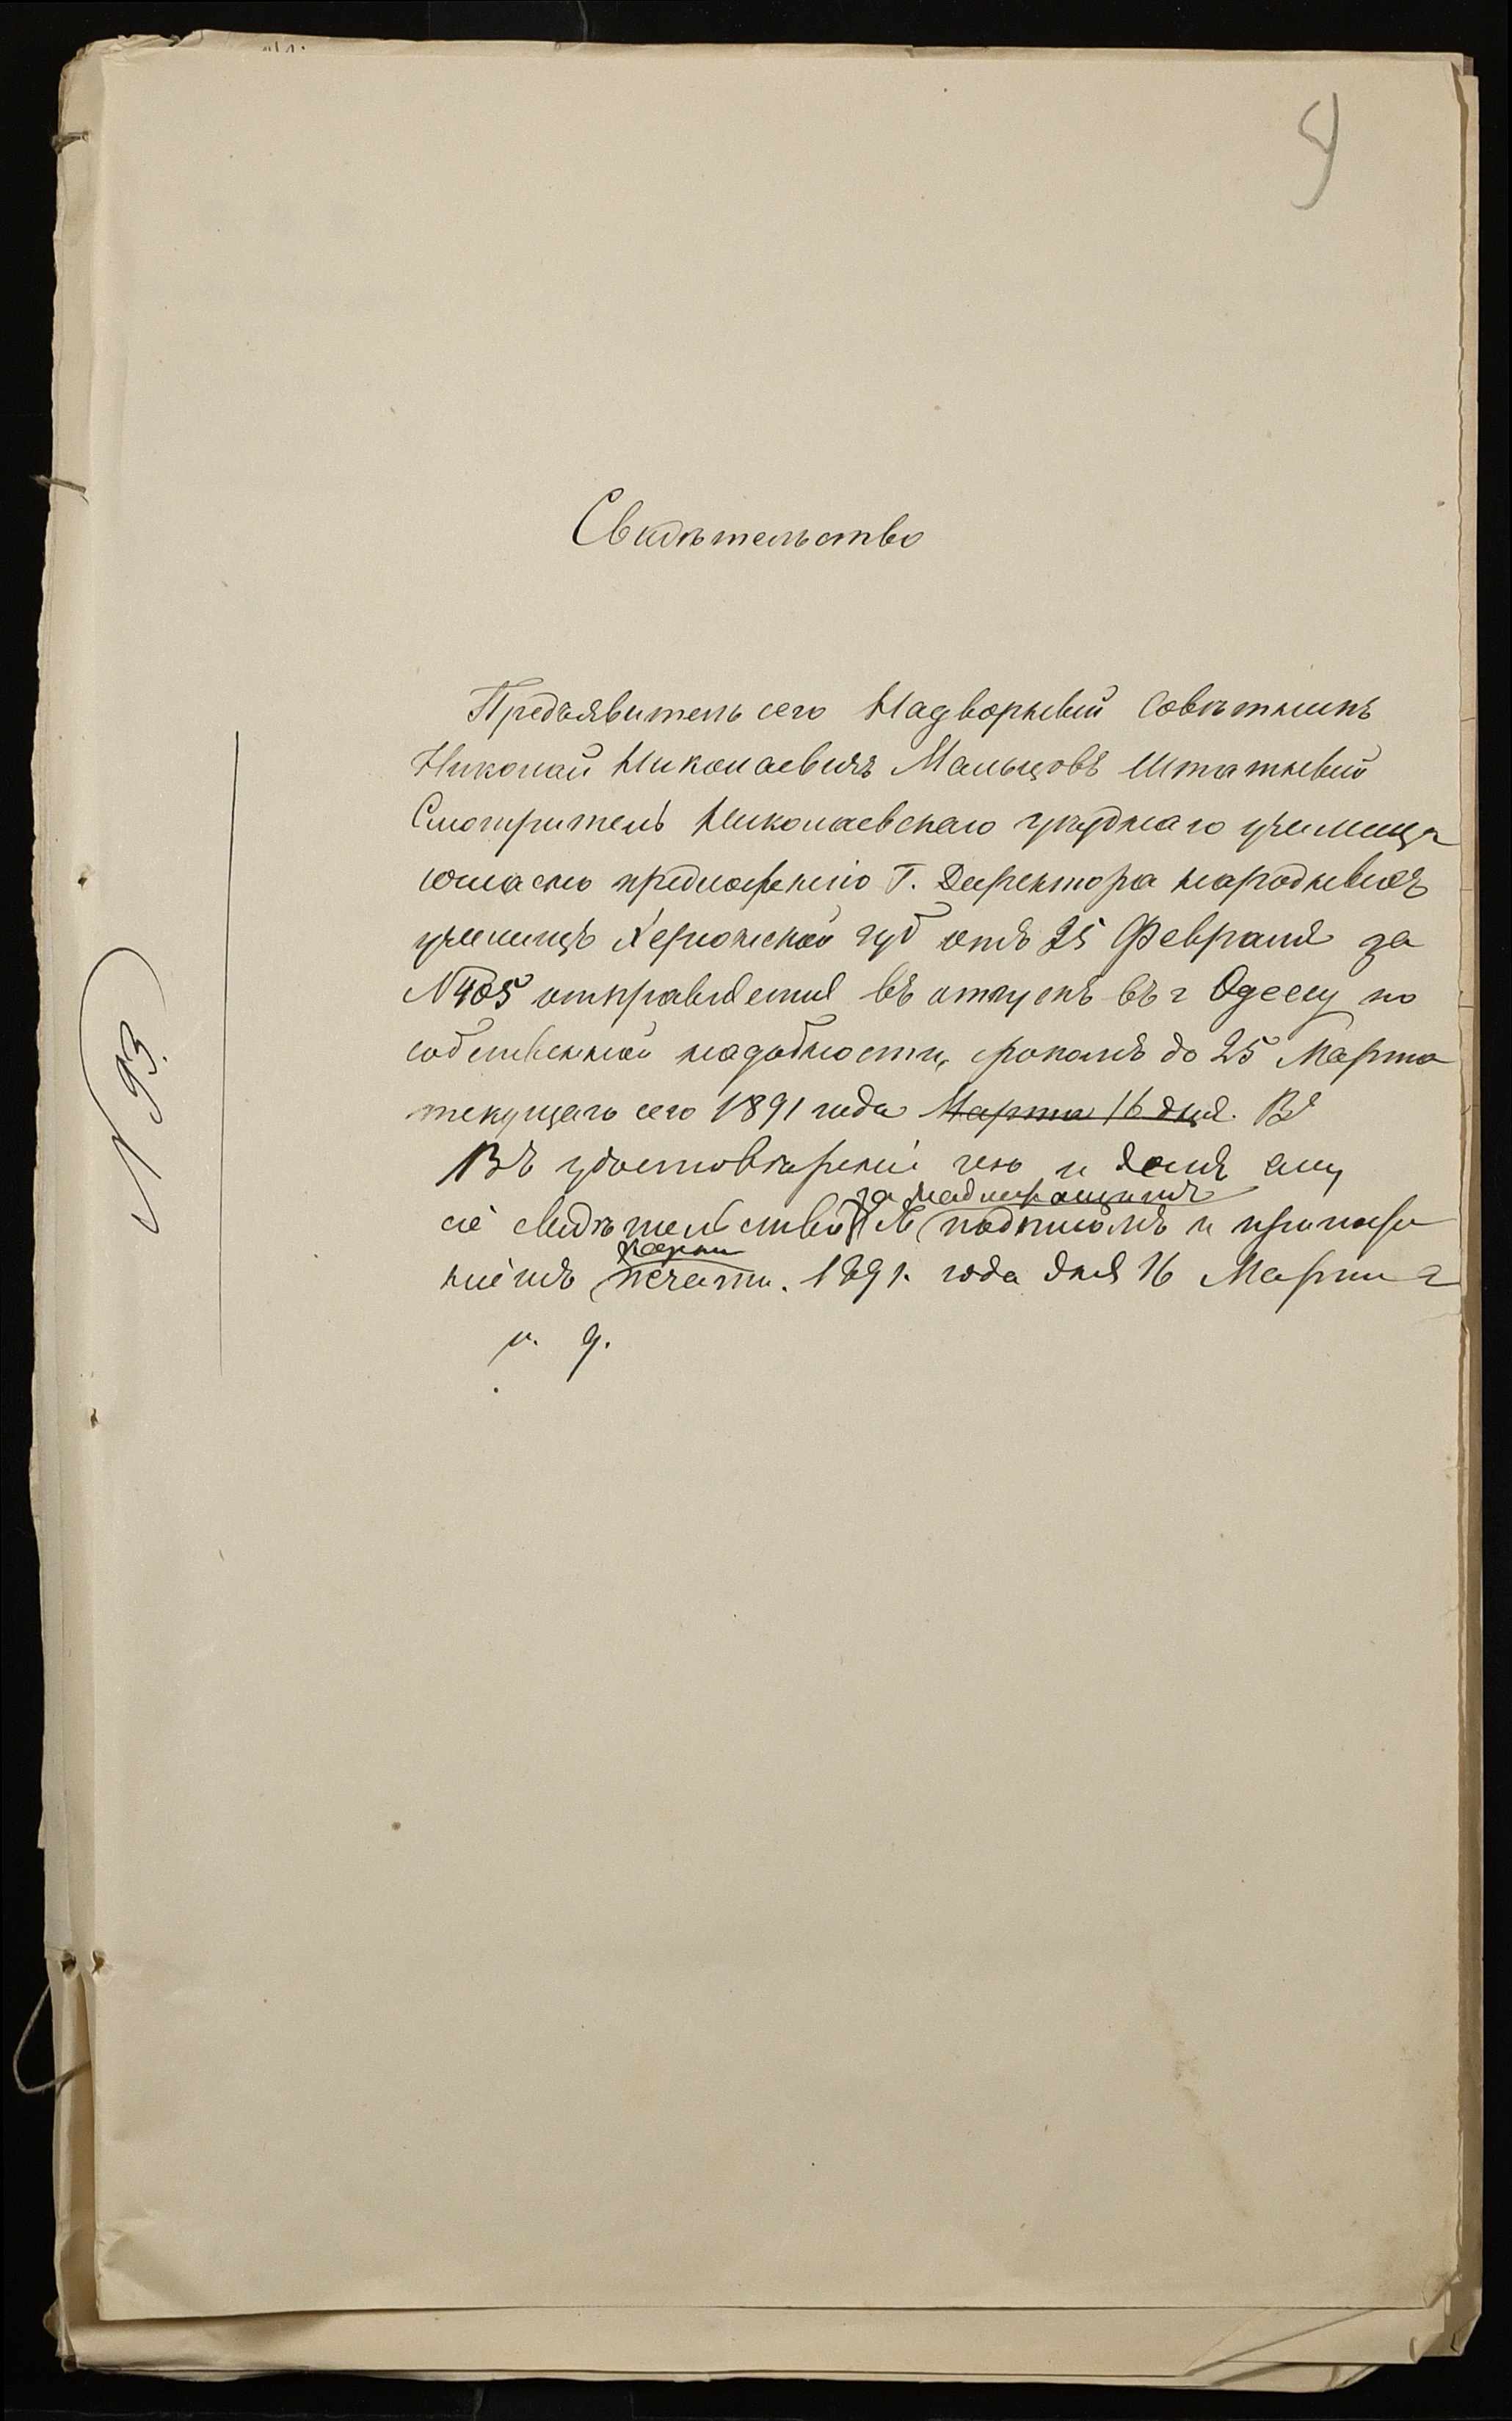 9
Свидѣтельство
Предъявитель сего Надворный Совѣтникъ
Николай Николаевичъ Мальцовъ Штатный
Смотритель Николаевскаго уѣзднаго училища
согласно предложенію Г. Директора народныхъ
училищъ Херсонской губ отъ 25 Февраля за
№405 отправляется въ отпускъ въ г Одессу по
собственной надобности, срокомъ до 25 Марта
текущаго сего 1891 года Марта 16 дня. Въ
Въ удостовѣреніи чего и данъ ему
за надлежащимъ
сіе свидѣтельство подписомъ и приложе
казен
ніемъ печати. 1891. года дня 16 Марта
и. д.
№ 93.